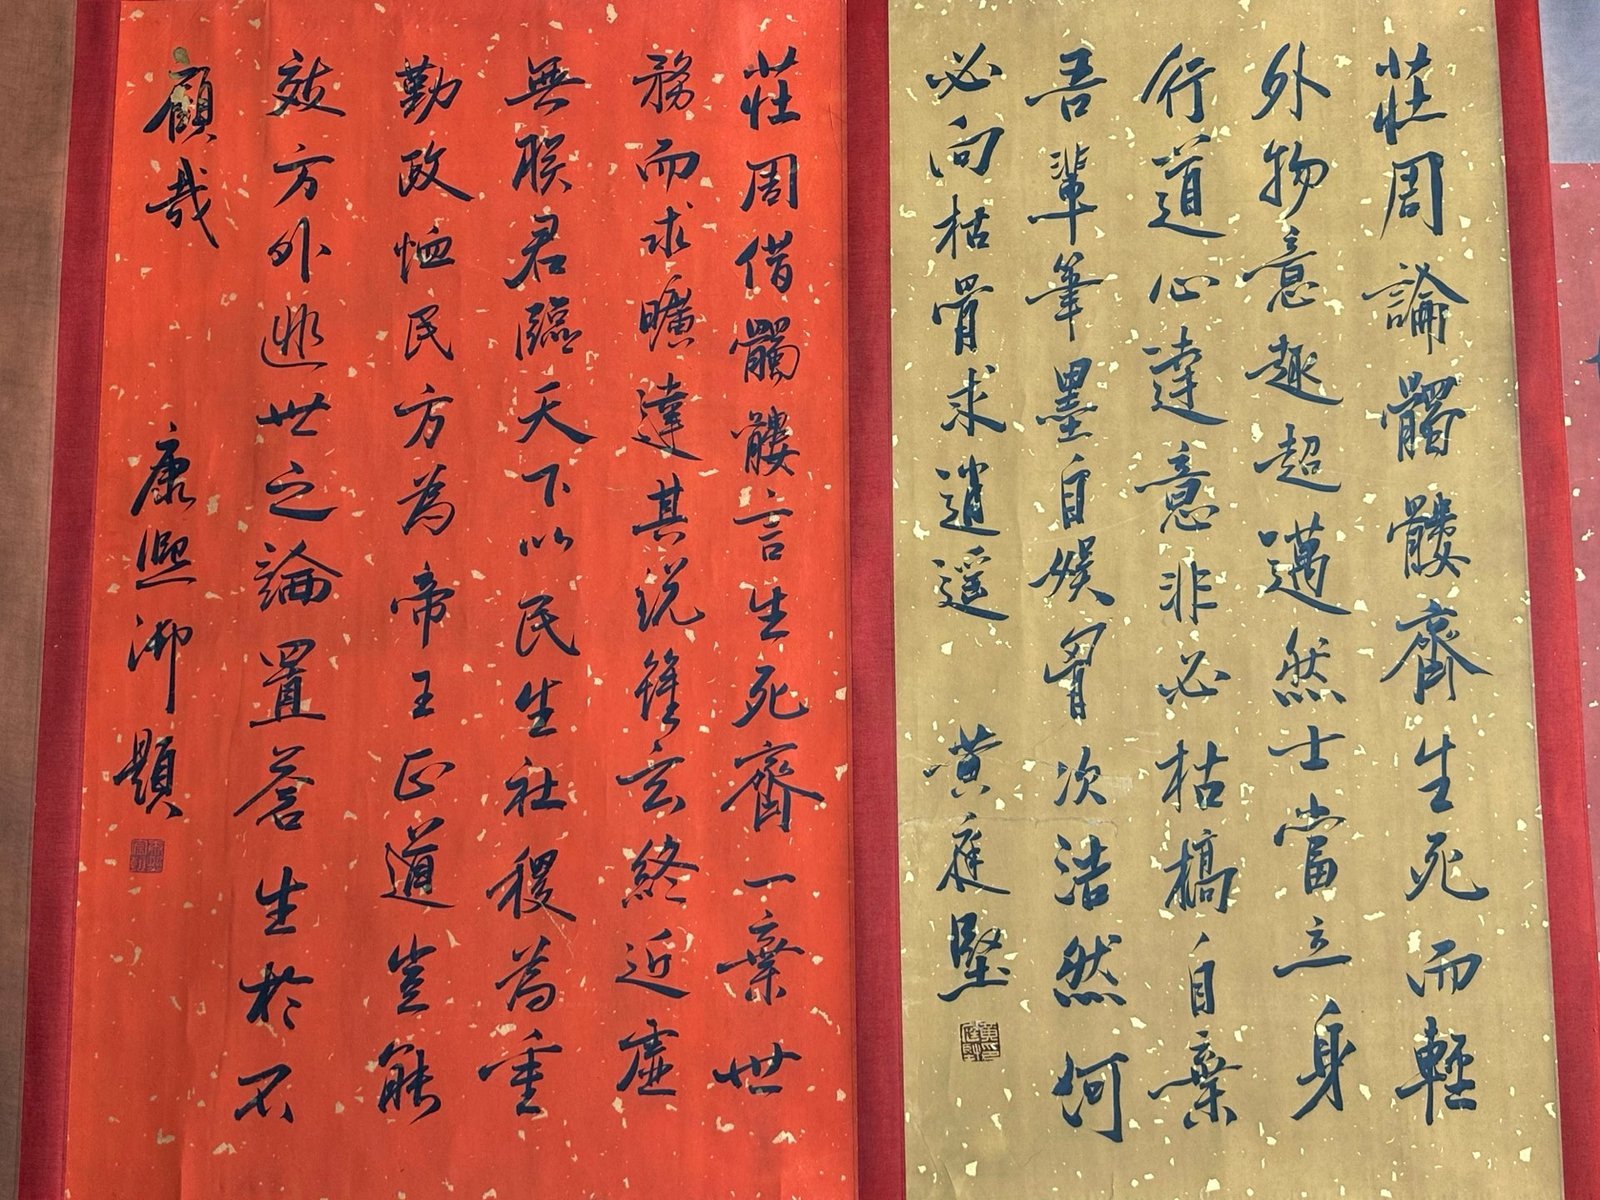 莊周論髑髏齊生死而輕
外物意趣超邁然士當立身
行道心達意非必枯槁自棄
吾輩筆墨自娛胷次洁然何
必向枯骨求逍遥
黄庭堅
莊周借髑髏言生死齊一棄世
務而求曠達其説雖玄終近虛
無朕君臨天下以民生社稷為重
勤政恤民方為帝王正道豈能
效方外遯世之論置蒼生於不
顧哉
康熙御題